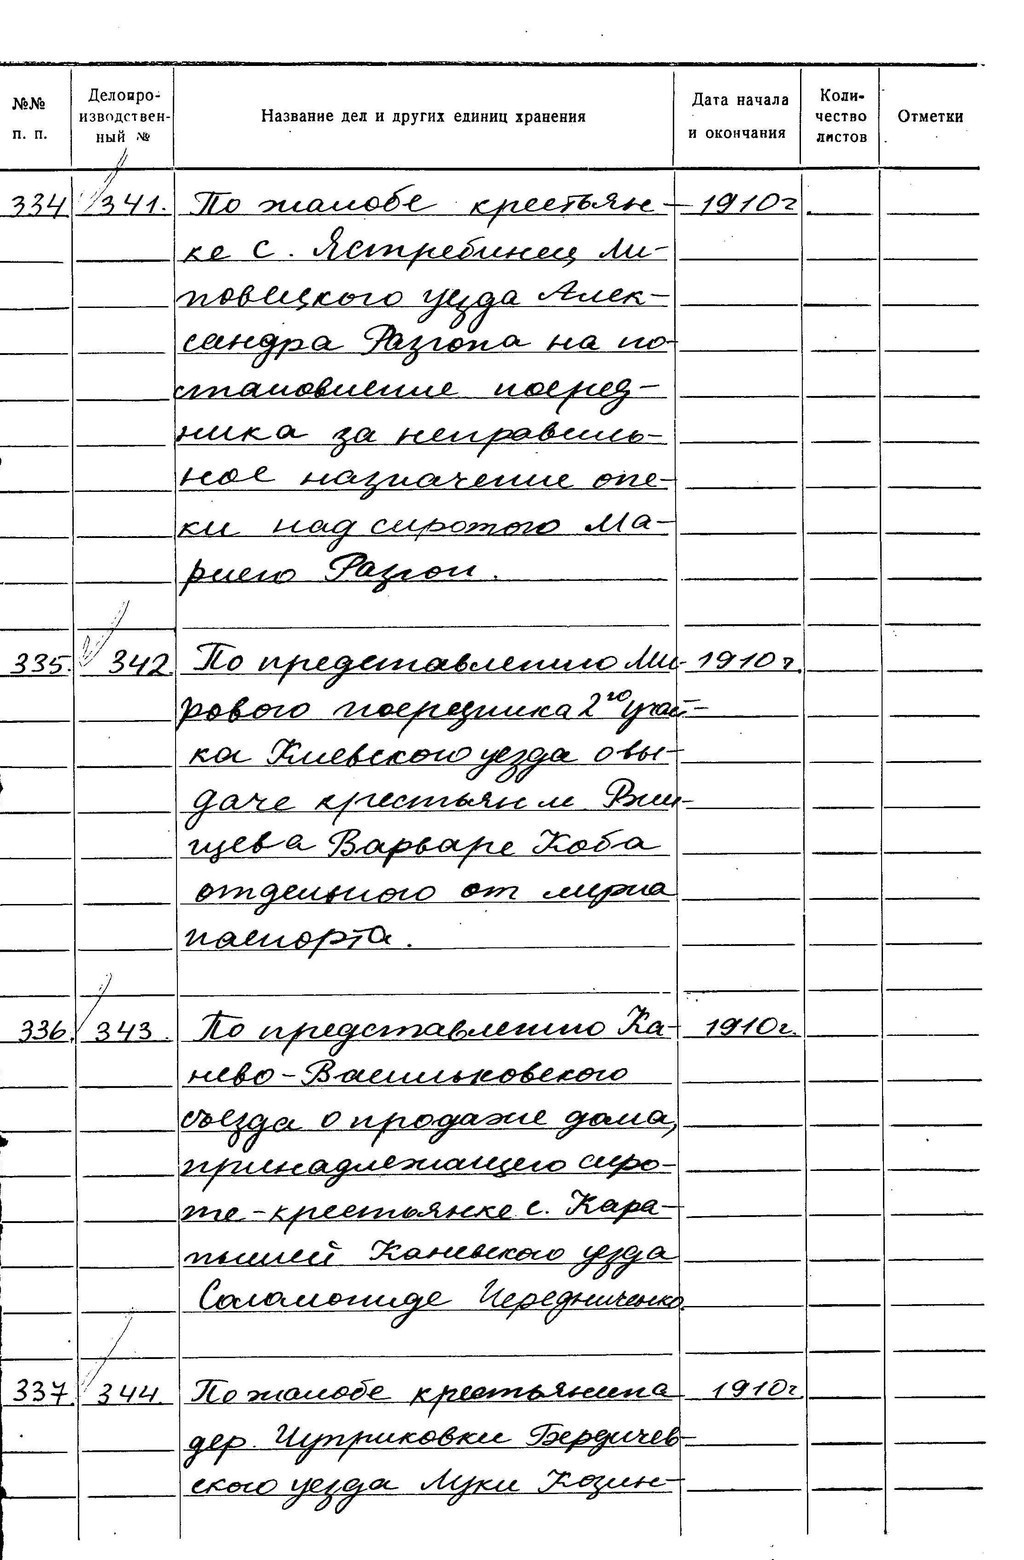 №№ п. п. Делопроизводственный № Название дел и других единиц хранения Дата начала и окончания Количество листов Отметки
334 341. По жалобе крестьян- 1910г.
ке с. Ястребинец Ли-
повецкого уезда Алек-
сандра Разгона на по-
становление посред-
ника за неправиль-
ное назначение опе-
ки над сиротою Ма-
риею Разгон.
335. 342. По представлению Ми- 1910г.
рового посредника 2го участ-
ка Киевского уезда о вы-
даче крестьян м. Ржи-
щева Варваре Коба
отдельного от мужа
паспорта.
336. 343. По представлению Ка- 1910г.
нево-Васильковского
съезда о продаже дома,
принадлежащего сиро-
те-крестьянке с. Кара-
пышей Каневского уезда
Саламониде Чередниченко
337. 344. По жалобе крестьянина 1910г.
дер. Чуприковки Бердичев-
ского уезда Луки Козин-